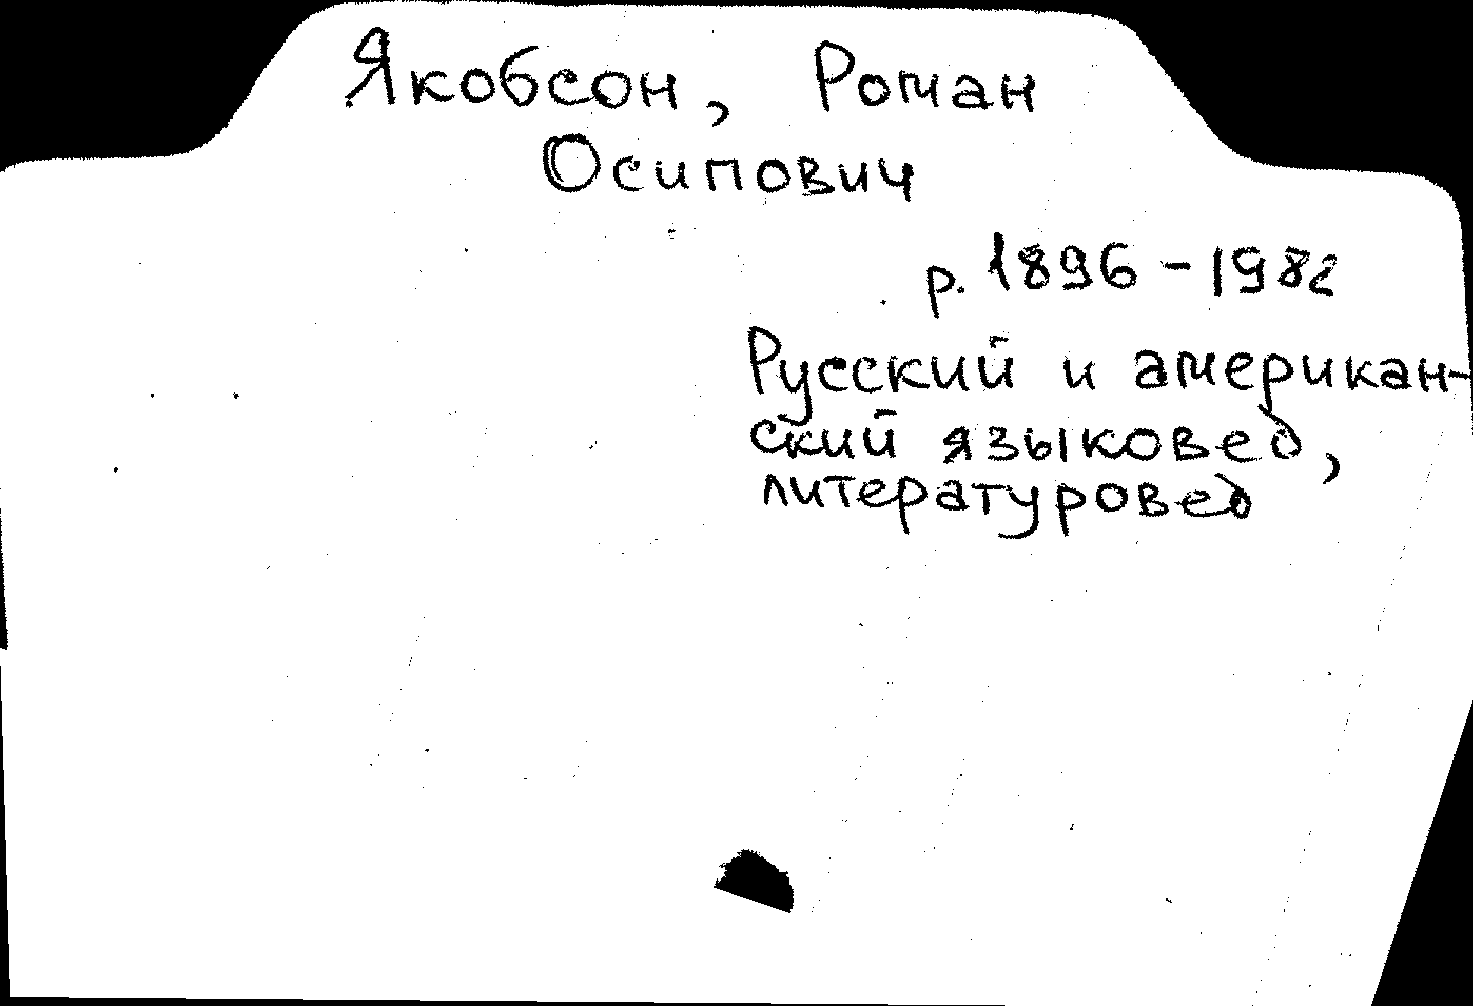 Якобсон, Роман
Осипович
р. 1896 - 1982
Русский и американ-
ский языковед,
литературовед